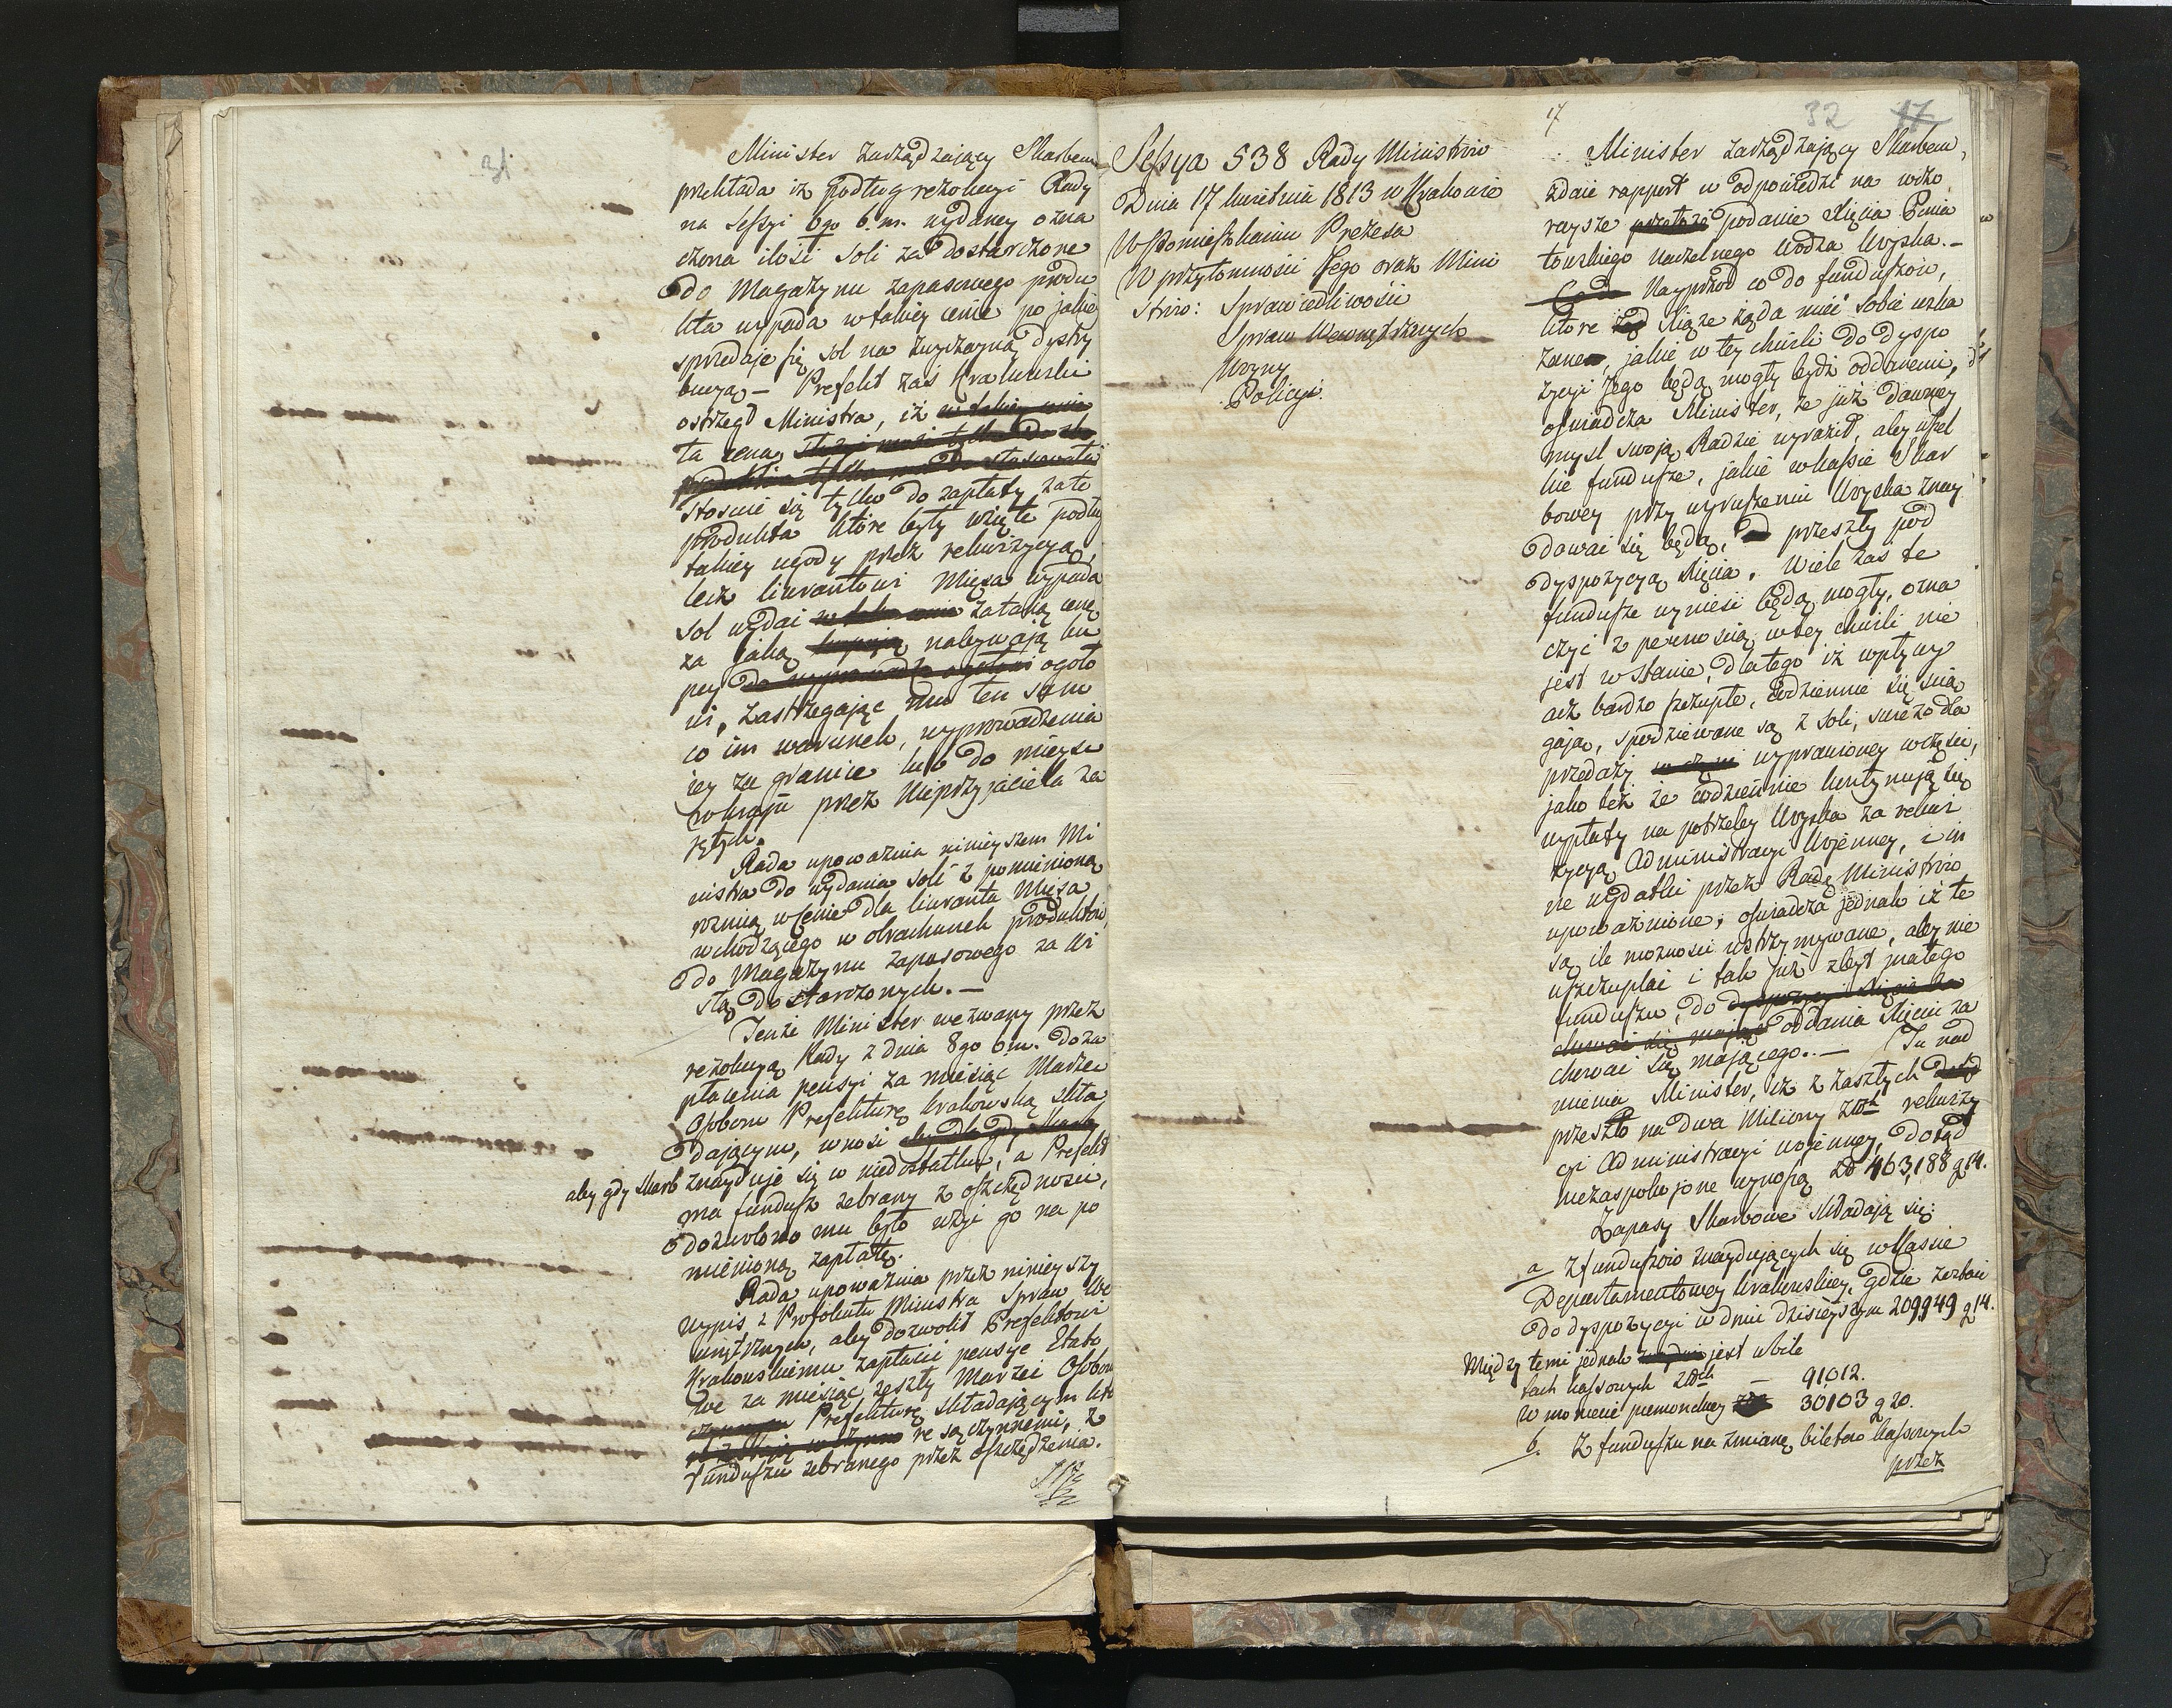 31
Minister Zarządzaiący Skarbem
przekłada iż podług rezolucyi Rady
na Sessyi 6go b. m. wydaney ozna
czona ilość soli za dostarczone
do Magazynu zapasowego produ
kta wypada w takiey cenie po jakiey
sprzedaje się sol na zwyczayną dystry
bucyą – Prefekt zaś Krakowski
ostrzegł Ministra, iż w takiey cenie
ta cena,
stosuie się tylko do zapłaty za te
produkta które były wzięte podług
takiey ugody przez rekwizycyą,
lecz liwerantowi Mięsa wypada
sol wydać za taką cenę
za jaką kupują nabywają ku
pcy ogoło
wi, zastrzegając mu ten sam
co im warunek, wyprowadzenia
iey za granice lub do mieysc
w kraju przez Nieprzyjaciela za
jętych.
Rada upoważnia nınieyszem Mi
nistra do wydania soli z pomienioną
roznicą w Cenie dla liweranta Mięsa
wchodzącego w obrachunek produktow,
do Magazynu zapasowego za Wi
słą dostarczonych. –
Tenże Minister wezwany przez
rezolucyą Rady z dnia 8go b. m. do za
płacenia pensyi za miesiąc Marzec
Osobom Prefekturę Krakowską skła
dającym, wnosi
aby gdy Skarb znayduje się w niedostatku, a Prefekt
ma fundusz zebrany z oszczędności,
dozwolono mu było użyć go na po
mienioną zapłatę.
Rada upoważnia przez ninieyszy
wypis z Protokułu Ministra Spraw We
wnętrznych, aby dozwolił Prefektowi
Krakowskiemu zapłacić pensye Etato
we za miesiąc zeszły Marzec Osobom
Prefekturę składającym kto
re są czynnemi, z
funduszu zebranego przez oszczędzenia.
Sessya 538 Rady Ministrow
Dnia 17 kwietnia 1813 w Krakowie
W Pomieszkaniu Prezesa
W przytomności Jego oraz Mini
strow: Sprawiedliwości
Spraw Wewnętrznych
Woyny
Policyi.
17 32 17
Minister Zarządzający Skarbem,
zdaie rapport w odpowiedzi na wczo
raysze podanie Xięcia Ponia
towskiego Naczelnego Wodza Woyska. –
Co do Nayprzod co do funduszow,
ktore Xiąże żąda mieć sobie wska
zane, jakie w tey chwili do dyspo
zycyi Jego będą mogły bydź oddanemi,
oświadcza Minister, że już dawniey
mysl swoją Radzie wyraził, aby wszel
kie fundusze, jakie w kassie Skar
bowey przy wyruszeniu Woyska znay
dować się będą, przeszły pod
dyspozycyą Xięcia. Wiele zaś te
fundusze wynieść będą mogły, ozna
czyć z pewnością w tey chwili nie
jest w stanie, dlatego iż wpływy
acz bardzo szczupłe, codziennie się ścią
gają, spodziewane są z soli, świeżo dla
przedaży wyprawioney w części,
jako też że codziennie kontynują się
wypłaty na potrzeby Woyska za rekwi
zycyą Administracyi Wojenney, i in
ne wydatki przez Radę Ministrow
upoważnione; oświadcza jednak iż te
są ile możności wstrzymywane, aby nie
uszczuplać i tak już zbyt małego
funduszu, do dyspozycyi Xięcia za
chować się mające oddania Xięciu za
chować się mającego. – Tu nad
mienia Minister, iż z zaszłych
przeszło na dwa Miliony złtch rekwizy
cyi Administracyi wojenney, dotąd
niezaspokojone wynoszą zł 463,188 g 14.
Zapasy Skarbowe składają się:
a z funduszow znaydujących się w Kassie
Departamentowey Krakowskiey, gdzie zarbow
do dyspozycyi w dniu dzisieyszym 209949 g 14.
Między temi jednak jest w bile
tach kassowych złtch – 91,012.
W monecie piemonckiey 30103 g 20.
b. Z funduszu na zmianę biletow kassowych
przez